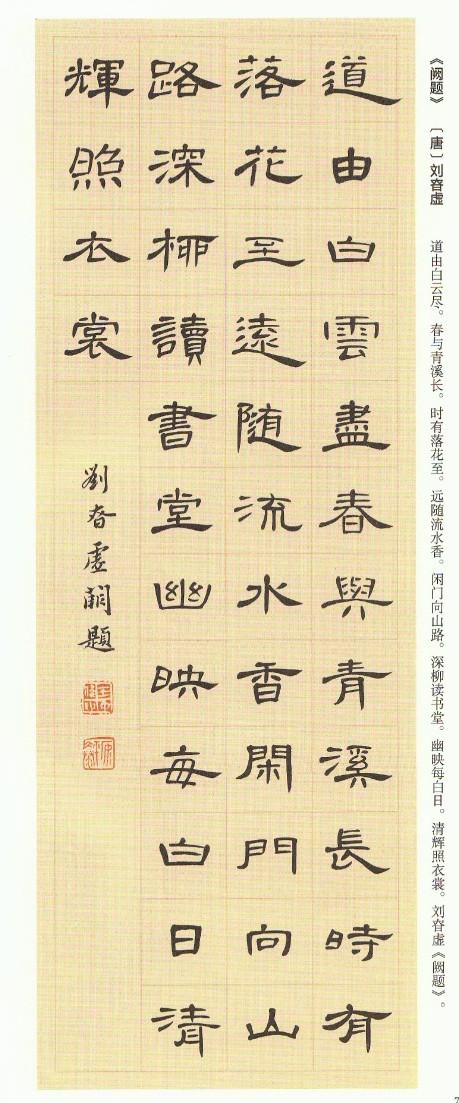 《阙题》 〔唐〕刘眘虚 道由白云尽。春与青溪长。时有落花至。远随流水香。闲门向山路。深柳读书堂。幽映每白日。清辉照衣裳。刘眘虚《阙题》。
道由白雲盡春與青溪長時有
落花至遠随流水香閑門向山
路深柳讀書堂幽映每白日清
輝照衣裳
劉眘虛闕題
7